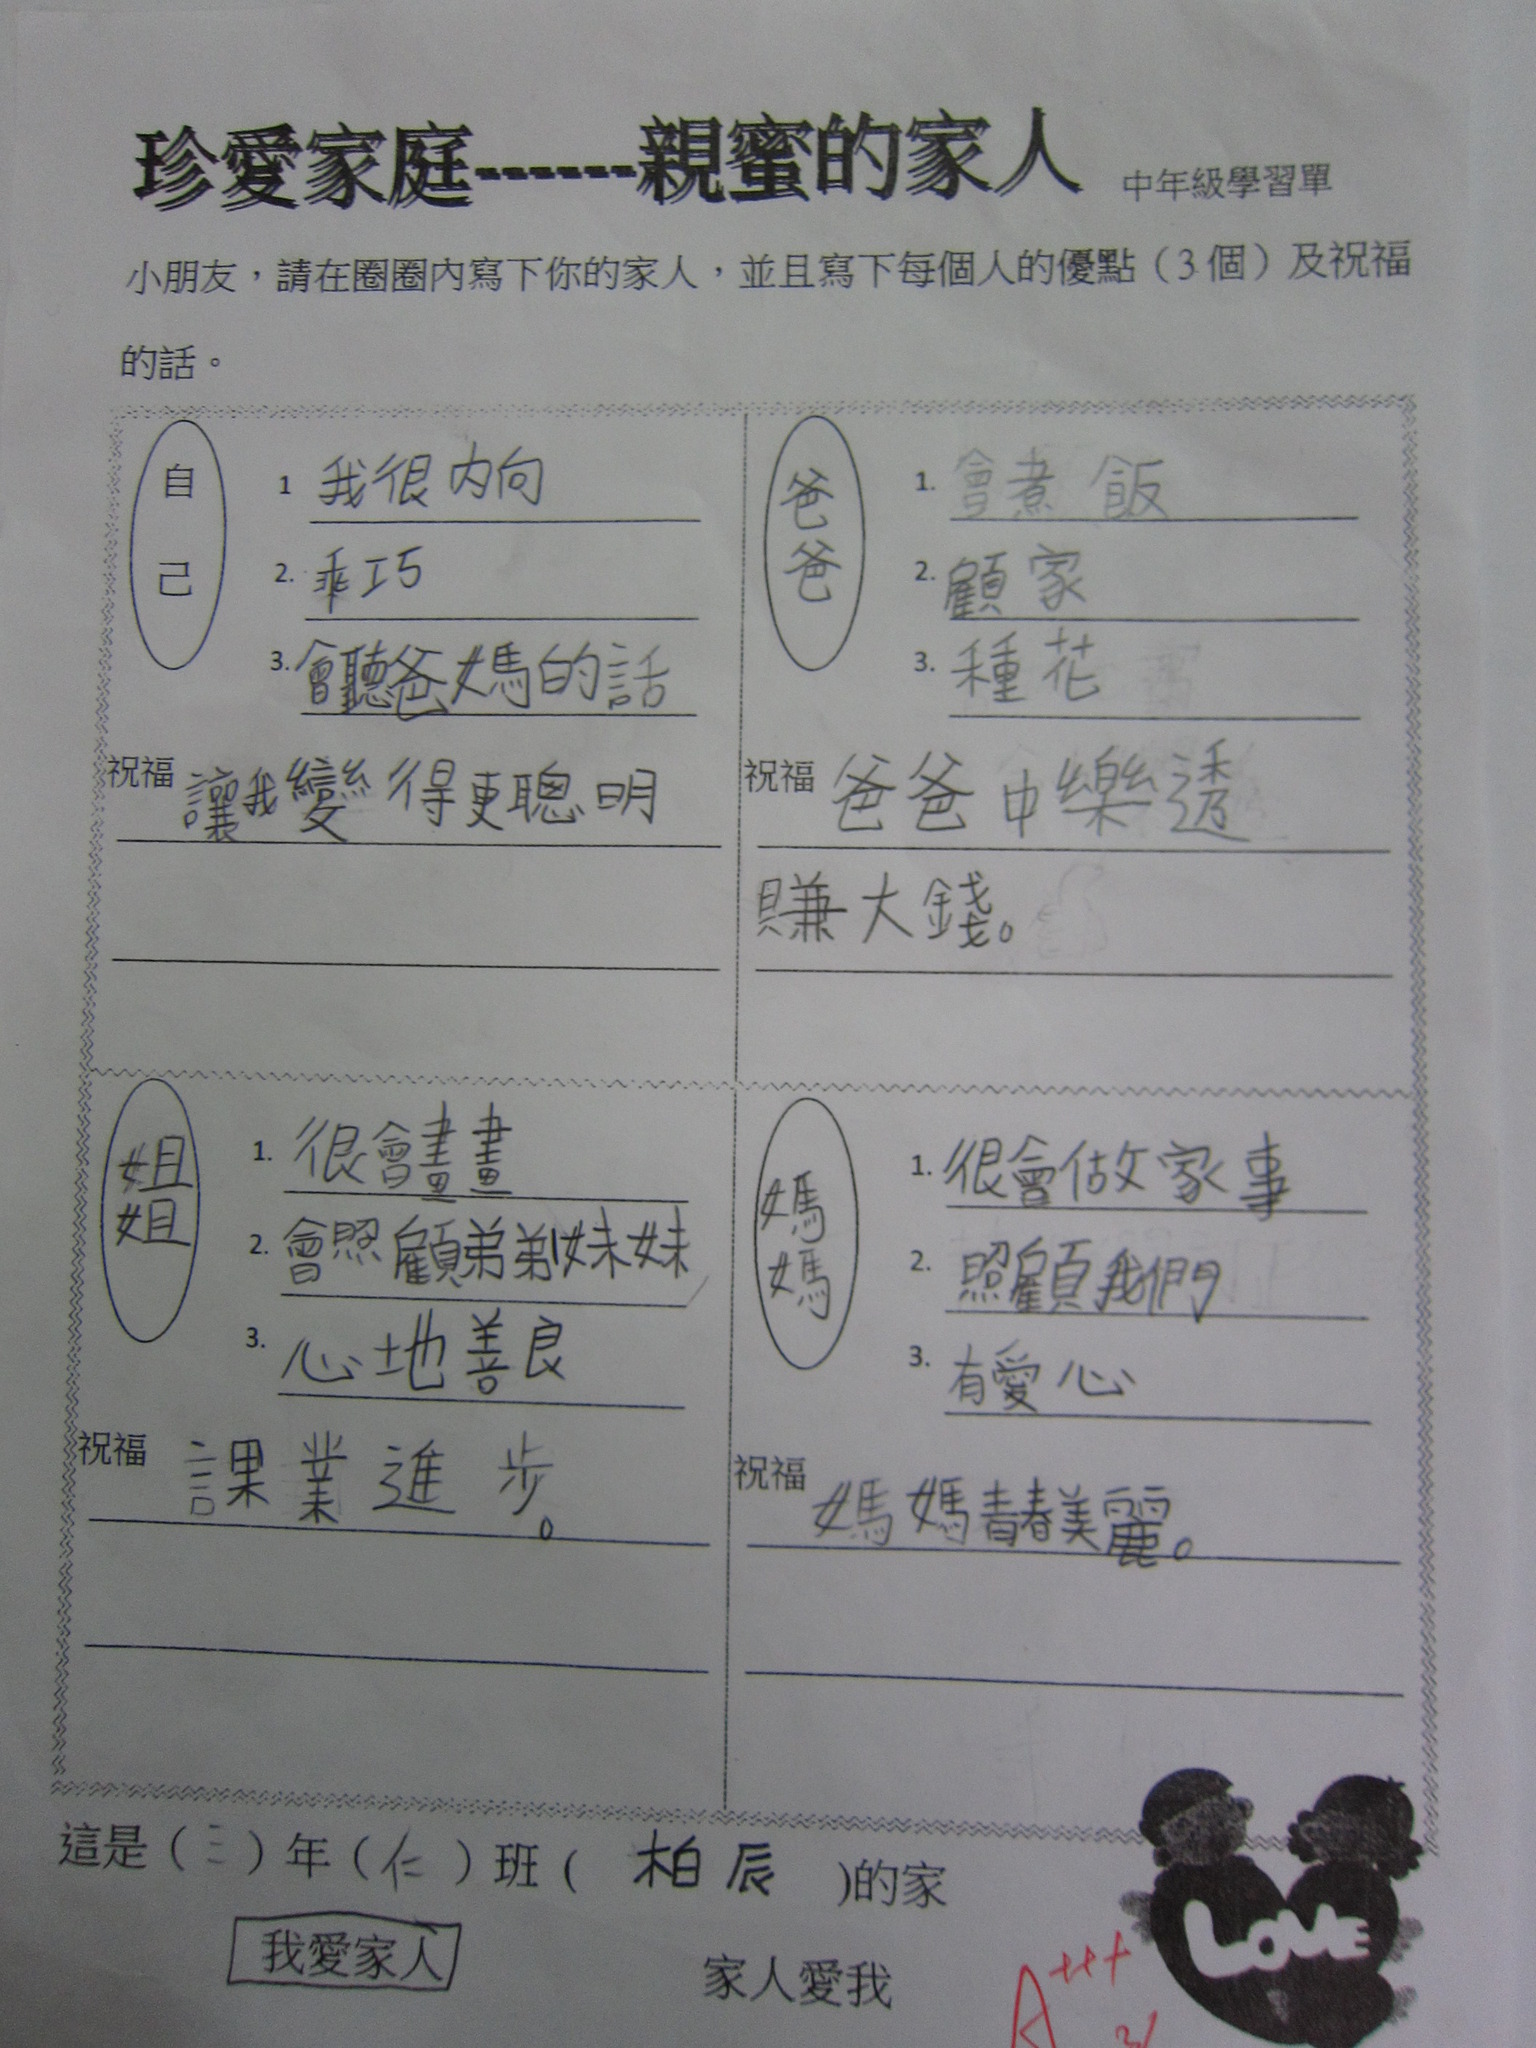 珍愛家庭------親蜜的家人 中年級學習單
小朋友，請在圈圈內寫下你的家人，並且寫下每個人的優點（3個）及祝福
的話。
自己
1 我很內向
2. 乖巧
3. 會聽爸媽的話
祝福 讓我變得更聰明
爸爸
1. 會煮飯
2. 顧家
3. 種花
祝福 爸爸中樂透
賺大錢。
姐姐
1. 很會畫畫
2. 會照顧弟弟妹妹
3. 心地善良
祝福 課業進步。
媽媽
1. 很會做家事
2. 照顧我們
3. 有愛心
祝福 媽媽青春美麗。
這是（三）年（仁）班（柏辰）的家
我愛家人 家人愛我
LOVE
A+++